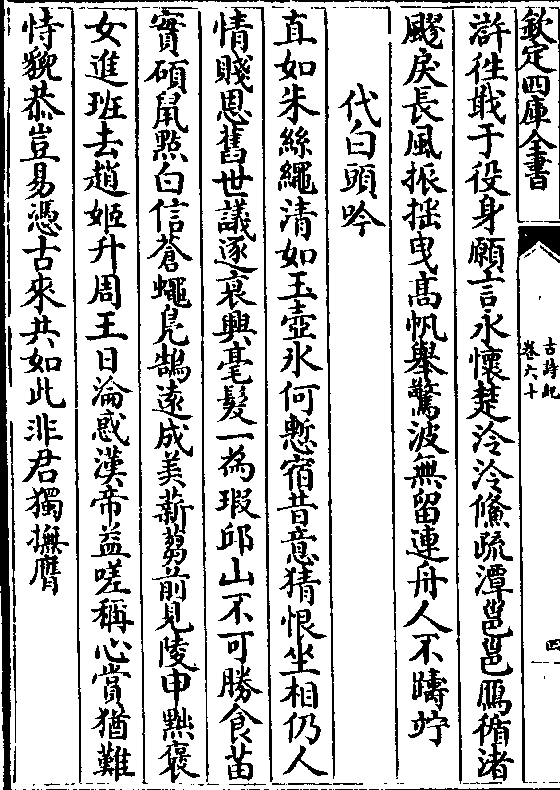 欽定四庫全書
古詩紀
卷六十
四
滸徃戢于役身願言永懷楚泠泠儵疏潭邕邕鴈循渚
飂戾長風振揺曳髙帆舉驚波無留連舟人不躊竚
代白頭吟
直如朱絲繩清如玉壺氷何慙宿昔意猜恨坐相仍人
情賤恩舊世議逐衰興毫髮一為瑕邱山不可勝食苗
實碩䑕㸃白信蒼蠅鳬鵠遠成美薪芻前見陵申黜褒
女進班去趙姬升周王日淪惑漢帝益嗟稱心賞猶難
恃貌恭豈易憑古來共如此非君獨撫膺